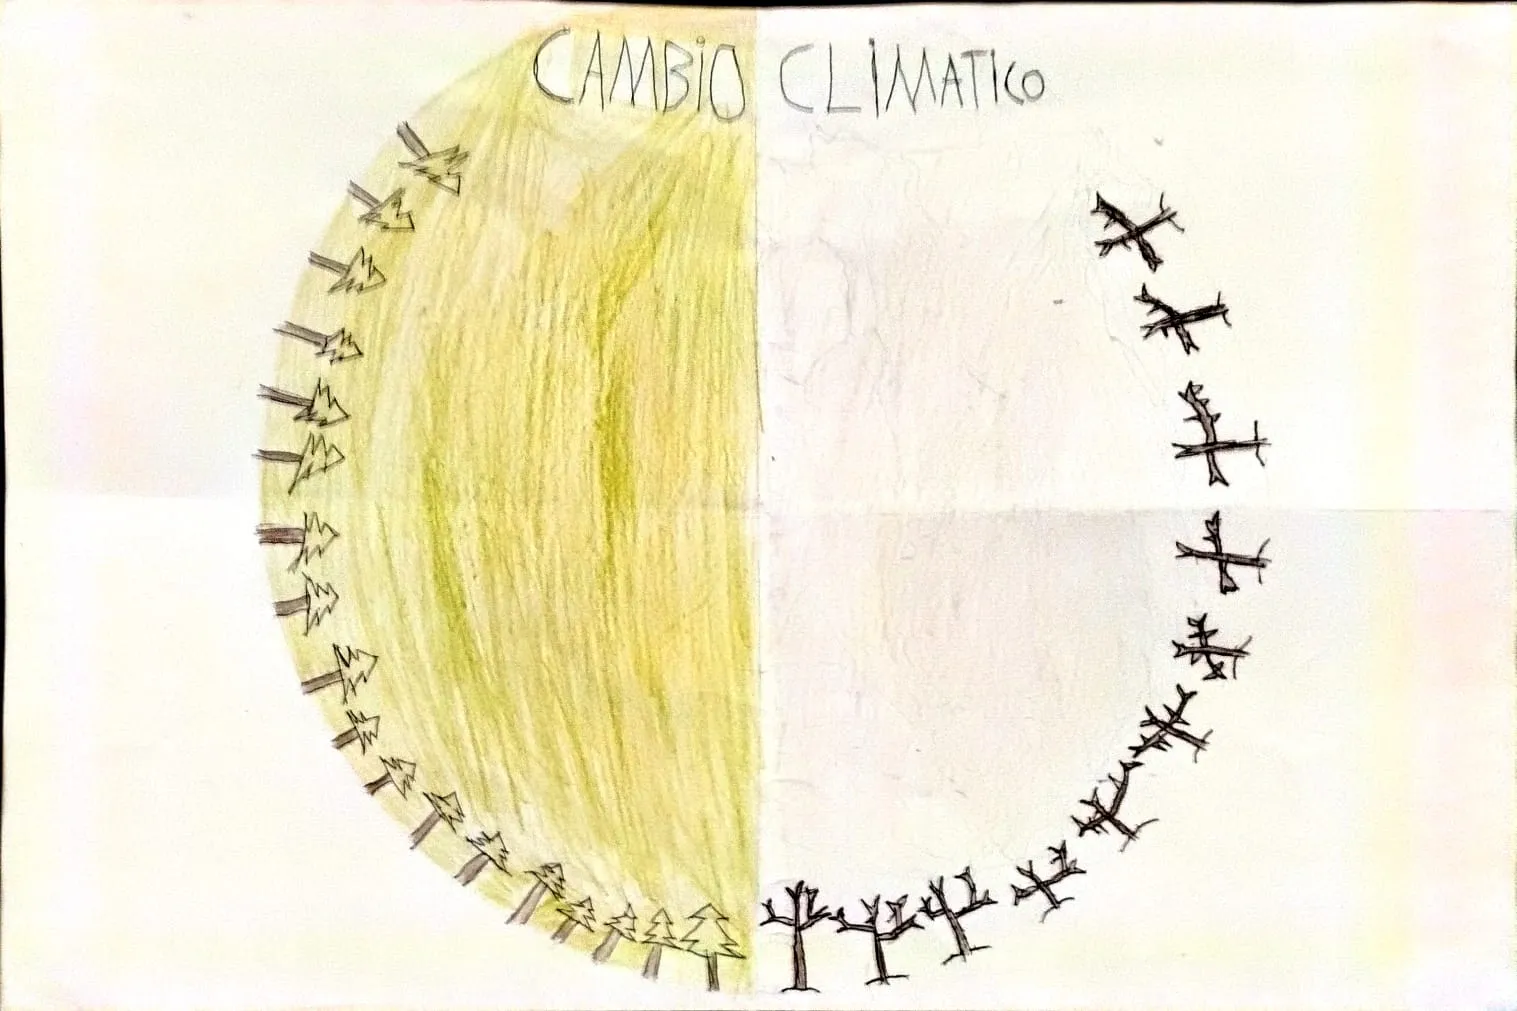 CAMBIO CLIMATICO